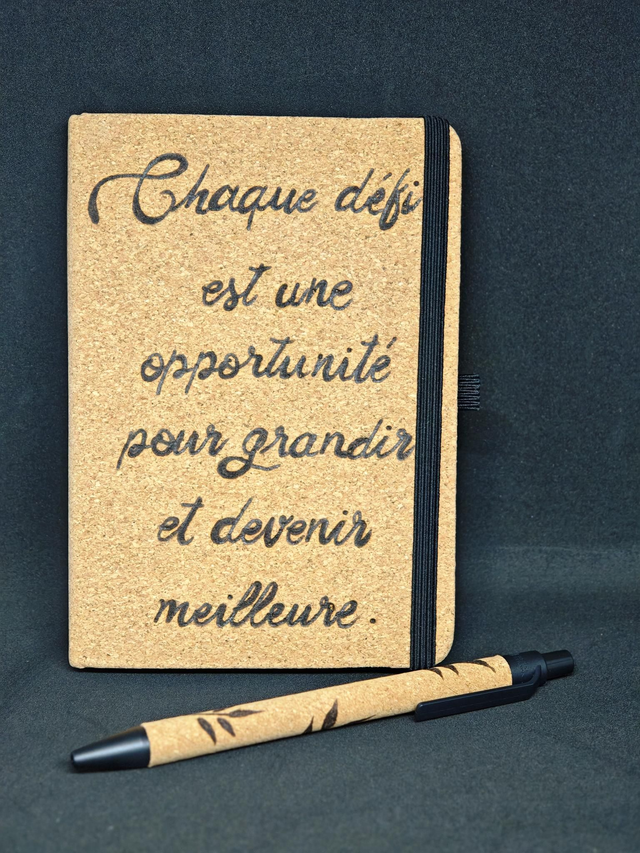 Chaque défi
est une
opportunité
pour grandir
et devenir
meilleure.